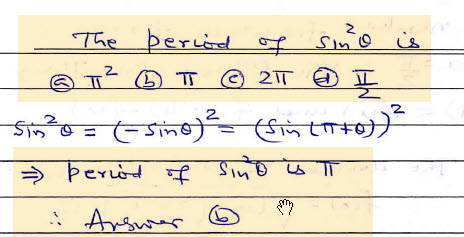 The period of sin²θ is
ⓐ π² ⓑ π ⓒ 2π ⓓ π/2
sin²θ = (-sinθ)² = (sin(π+θ))²
⇒ period of sin²θ is π
∴ Answer ⓑ